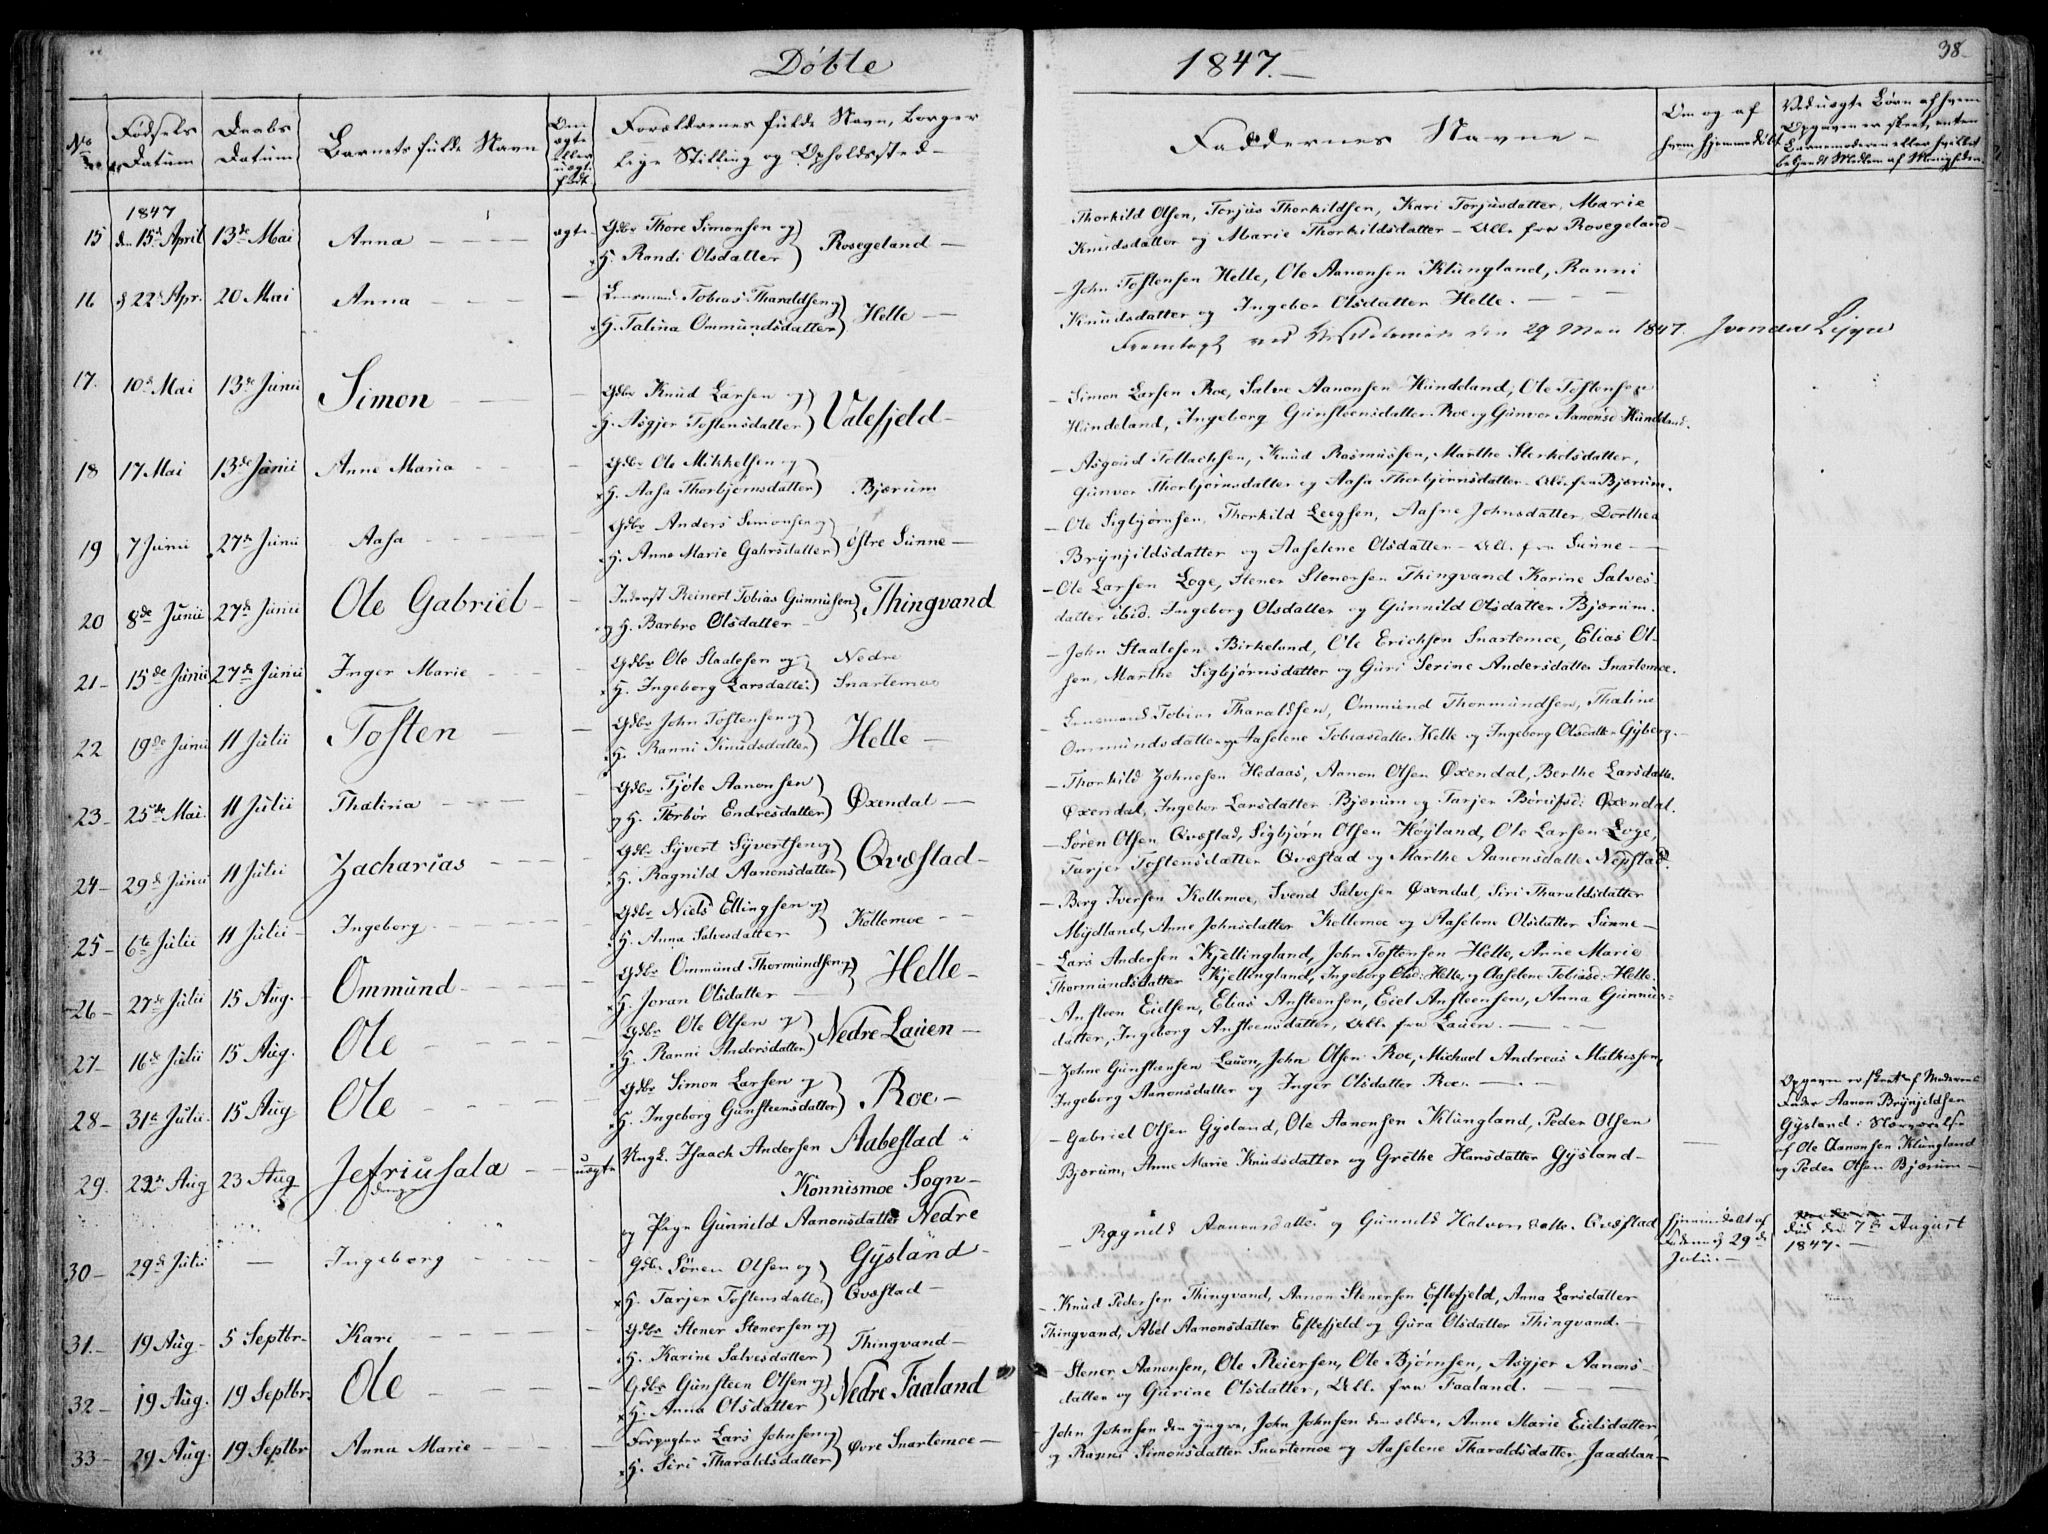 Døbte
1847.
38
No
Fødsels Datum
Daabs Datum
Barnets fulde Navn
Om ægte eller uægte født
Forældrenes fulde Navn, borgerlige Stilling og Opholdssted
Faddernes Navne
Om og af hvem hjemmedøbt
Ved uægte Børn af hvem Opgaven er skeet, enten
1847
15 den 15de April 13de Mai Anna ægte Gdbr Thore Simonsen og H. Randi Olsdatter Rosegeland
Thorkild Olsen, Torjus Thorkildsen, Kari Torjusdatter, Marie
Knudsdatter og Marie Thorkildsdatter - Alle fra Rosegeland
16 d 22 Apr. 20 Mai Anna Lensmand Tobias Tharaldsen og H. Talina Ommundsdatter Helle
John Tostensen Helle, Ole Aanonsen Klungland, Ranni
Knudsdatter og Ingebor Olsdatter Helle.
den 29 1847.
17. 10d Mai 13de Junii Simon Gdbr Knud Larsen og H. Asgjer Tostensdatter Valefjeld
Simon Larsen Roe, Salve Aanonsen Hundeland, Ole Tostensen
Hundeland, Ingeborg Gunsteensdatter Roe og Gunvor Aanonsd Hundeland.
18 17 Mai 13de Junii Anne Maria Gdbr Ole Mikkelsen og H. Aasa Thorbjørnsdatter Bjærum
Asgoud Tollachsen, Knud Rasmussen, Marthe Sterkolsdatter,
Gunvor Thorbjørnsdatter og Aasa Thorbjørnsdatter. Alle fra Bjærum.
19 7 Junii 27de Junii Aasa Gdbr Anders Simonsen og H. Anne Marie Gahrsdatter Østre Sunne
Ole Sigbjørnsen, Thorkild Leegsen, Aasne Johnsdatter, Dorthea
Brynjildsdatter og Aaselene Olsdatter - Alle fra Sunne
20 8de Junii 27de Junii Ole Gabriel Inderst Reinert Tobias Gunnufsen og H. Barbro Olsdatter Thingvand
Ole Larsen Loge, Stener Stenersen Thingvand Karine Salves-
datter ibid. Ingeborg Olsdatter og Gunnild Olsdatter Bjærum.
21 15de Junii 27de Junii Inger Marie Gdbr Ole Staalesen og H. Ingeborg Larsdatter Nedre Snartemoe
John Staalesen Birkeland, Ole Erichsen Snartemoe, Elias Ol-
sen, Marthe Sigbjørnsdatter og Guri Serine Andersdatter Snartemoe.
22 19de Junii 11 Julii Tosten Gdbr John Tostensen og H. Ranni Knudsdatter Helle
Lensmand Tobias Tharaldsen, Ommund Thormundsen, Thaline
Ommundsdatter og Aaselene Tobiasdatter Helle og Ingeborg Olsdatter Gyberg.
23 25de Mai 11 Julii Thalina Gdbr Tjøte Aanonsen og H. Torbør Endresdatter Øxendal
Thorkild Johnesen Hedaas, Aanon Olsen Øxendal, Berthe Larsdatter
Øxendal, Ingebor Larsdatter Bjærum og Tarjer Børufsd: Øxendal.
24 29d Junii 11 Julii Zacharias Gdbr Syvert Syvertsen og H. Ragnild Aanonsdatter Qvæstad
Søren Olsen Qvæstad, Sigbjørn Olsen Høyland, Ole Larsen Loge,
Tarjer Tostensdatter Qvæstad og Marthe Aanonsdatter Nepstad.
25 6te Julii 11 Julii Ingeborg Gdbr Niels Ellingsen og H. Anna Salvesdatter Kollemoe
Berg Iversen Kollemoe, Svend Salvesen Øxendal, Siri Tharaldsdatter
Mydland, Anne Johnsdatter Kollemoe og Aaselene Olsdatter Sunne
26 27de Julii 15 Aug. Ommund Gdbr Ommund Thormundsen og H. Joran Olsdatter Helle
Lars Andersen Kjellingland, John Tostensen Helle, Anne Marie
Thormundsdatter Kjellingland, Ingeborg Olsd: Helle og Aaselene Tobiasd: Helle.
27 16de Julii 15 Aug. Ole Gdbr Ole Olsen og H. Ranni Andersdatter Nedre Lauen
Ansteen Eielsen, Elias Ansteensen, Eiel Ansteensen, Anna Gunnufs-
datter, Ingeborg Ansteensdatter, Alle fra Lauen.
28 31te Julii 15 Aug Ole Gdbr Simon Larsen og H. Ingeborg Gunsteensdatter Roe
Johne Gunsteensen Lauen, John Olsen Roe, Michael Andreas Mathissen,
Ingeborg Aanonsdatter og Inger Olsdatter Roe.
29. 22de Aug 23 Aug Jefriusala uægte Ungk. Isaach Andersen Aabestad i Konnismoe Sogn og Pige Gunnild Aanonsdatter Nedre Gysland
Gabriel Olsen Gysland, Ole Aanonsen Klungland, Peder Olsen
Bjærum, Anne Marie Knudsdatter og Grethe Hansdatter Gysland
Opgaven er skeet af Moderens Fader Aanon Brynjeldsen Gysland i Nærværelse af Ole Aanonsen Klungland og Peder Olsen Bjærum
30 29d Julii Ingeborg Gdbr Søren Olsen og H. Tarjer Tostensdatter Qvæstad
Ragnild Aanonsdatter og Gunnild Halvorsdatter Qvæstad
hjemmedøbt af Faderen d 29de Julii.
Død den 7de August 1847.
31. 19 Aug 5 Septbr Kari Gdbr Stener Stenersen og H. Karine Salvesdatter Thingvand
Knud Pedersen Thingvand, Aanon Stenersen Eftefjeld, Anna Larsdatter
Thingvand, Abel Aanonsdatter Eftefjeld og Gura Olsdatter Thingvand.
32 19 Aug. 19 Septbr. Ole Gdbr Gunsteen Olsen og H. Anna Olsdatter Nedre Faaland
Stener Aanonsen, Ole Reiersen, Ole Bjørnsen, Asgjer Aanons-
datter og Gurine Olsdatter, Alle fra Faaland.
33 29 Aug. 19 Septbr Anna Marie Forpagter Lars Johnsen og H. Siri Tharaldsdatter Øvre Snartemoe
John Johnsen den yngre, John Johnsen den ældre, Anne Marie Eielsdatter,
og Ranni Simonsdatter Snartemoe og Aaselene Tharaldsdatter Jaaddan